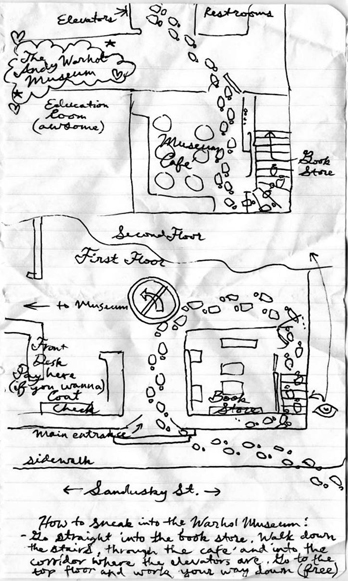 Elevators
Restrooms
The
Andy Warhol
Museum
Education
Room
(awsome)
Museum
Cafe
Book
Store
Second Floor
First Floor
← to Museum
Front
Desk
Pay here
(if you wanna)
Coat
Check
Book
Store
Main entrance
Sidewalk
← Sandusky St. →
How to sneak into the Warhol Museum:
- Go straight into the book store. Walk down
the stairs, through the cafe and into the
corridor where the elevators are. Go to the
top floor and work your way down (free)